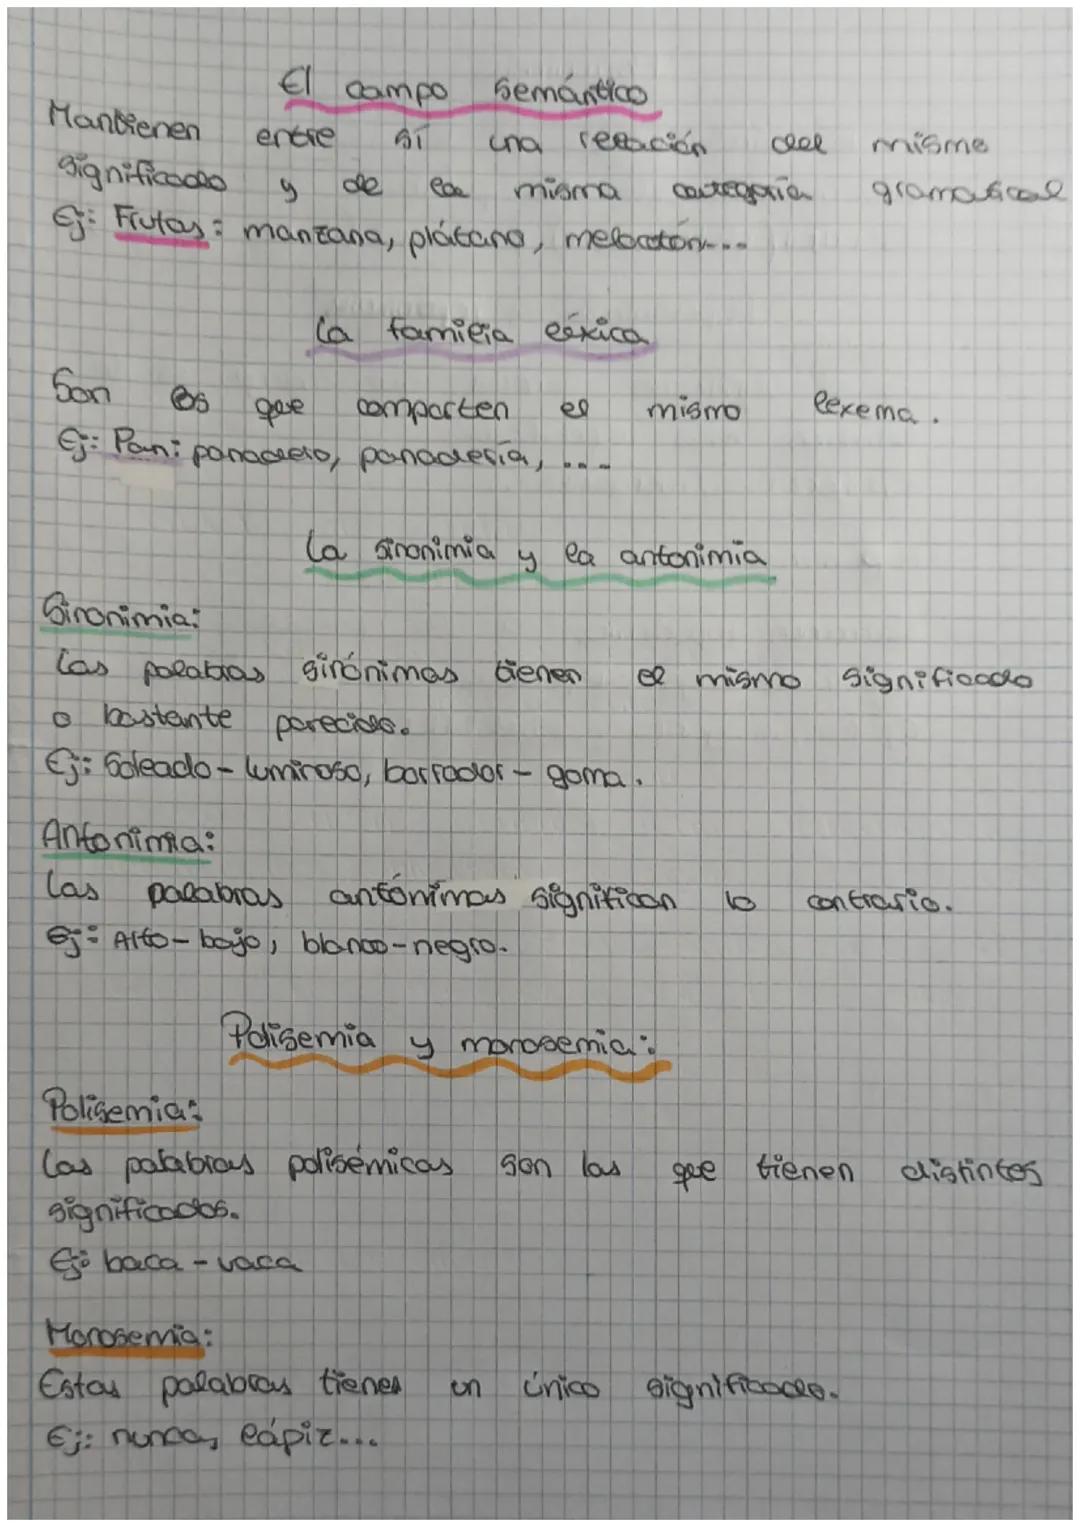 El campo semántico
Mantienen entre sí una relación del mismo
significado y de la misma categoría gramatical
Ej: Frutas: manzana, plátano, melocotón...
La familia léxica
Son los que comparten el mismo lexema.
Ej: Pan: panadero, panadería, ....
La sinonimia y la antonimia
Sinonimia:
Las palabras sinónimas tienen el mismo significado
o bastante parecido.
Ej: Soleado - luminoso, borrador - goma.
Antonimia:
Las palabras antónimas significan lo contrario.
Ej: Alto - bajo, blanco - negro.
Polisemia y monosemia:
Polisemia:
Las palabras polisémicas son las que tienen distintos
significados.
Ej: baca - vaca
Monosemia:
Estas palabras tienen un único significado.
Ej: nunca, lápiz...